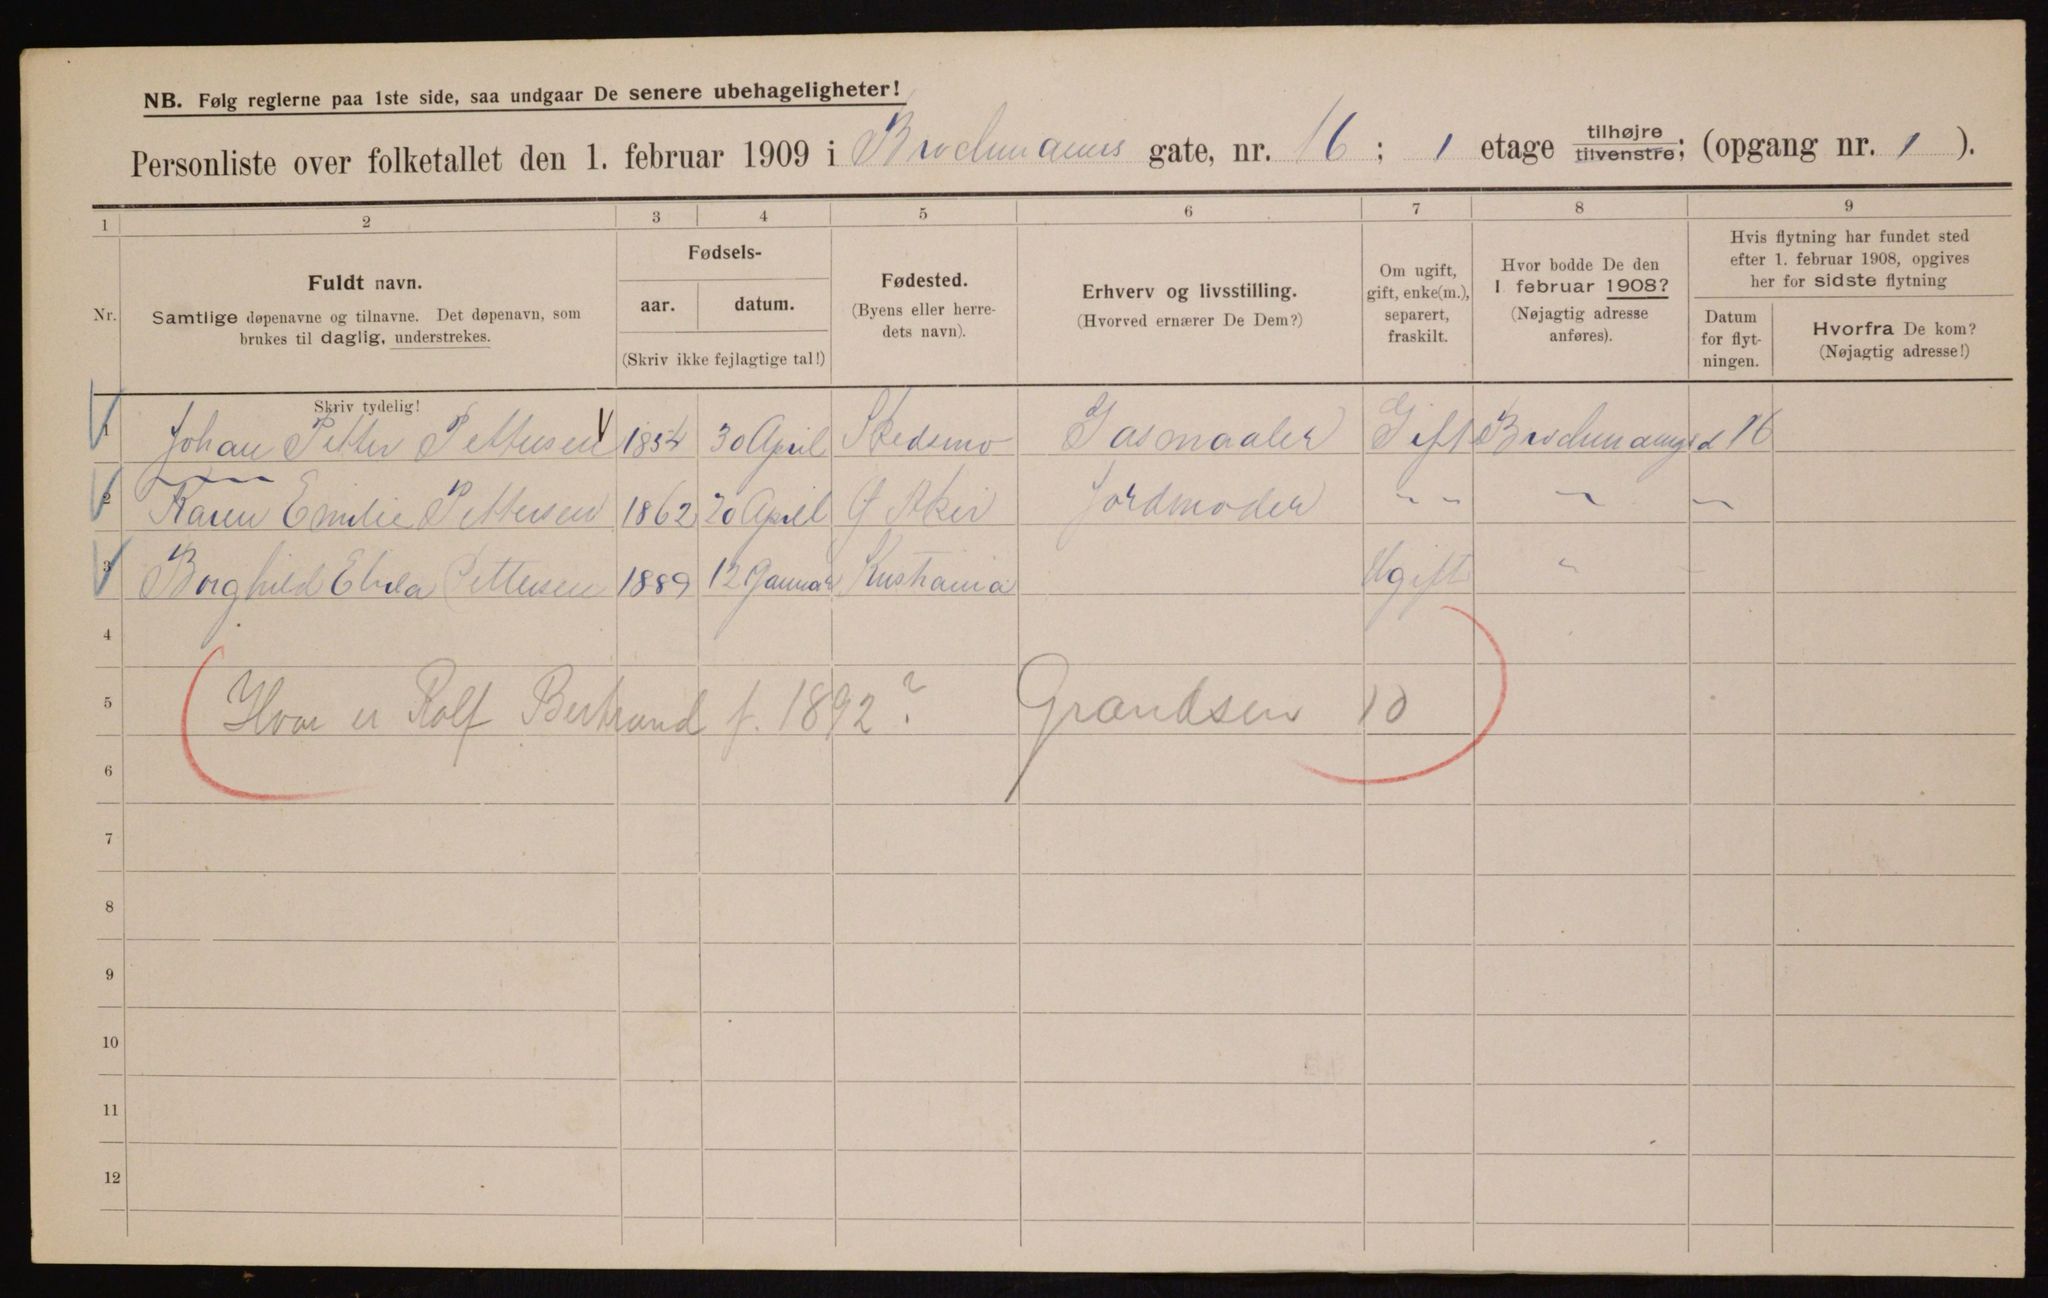 NB. Følg reglerne paa 1ste side, saa undgaar De senere ubehageligheter!
Personliste over folketallet den 1. februar 1909 i Brochmanns gate, nr. 16 ; 1 etage tilhøjre tilvenstre; (opgang nr. 1 ).
1 2 3 4 5 6 7 8 9
Nr.
Fuldt navn.
Samtlige døpenavne og tilnavne. Det døpenavn, som
brukes til daglig, understrekes.
Skriv tydelig!
Fødsels-
aar. datum.
(Skriv ikke fejlagtige tal!)
Fødested.
(Byens eller herre-
dets navn).
Erhverv og livsstilling.
(Hvorved ernærer De Dem?)
Om ugift,
gift, enke(m.),
separert,
fraskilt.
Hvor bodde De den
1 februar 1908?
(Nøjagtig adresse
anføres).
Hvis flytning har fundet sted
efter 1. februar 1908, opgives
her for sidste flytning
Datum
for flyt-
ningen.
Hvorfra De kom?
(Nøjagtig adresse!)
1 Johan Petter Pettersen 1854 30 April Skedsmo Gasmaaler Gift Brochmansgd 16
2 Karen Emilie Pettersen 1862 20 April Ø Aker Jordmoder " " " "
3 Borghild Pettersen 1889 12 Januar Kristiania Ugift "
4
5 Hvor er Rolf Bertrand f. 1892? Grandsen 10
6
7
8
9
10
11
12